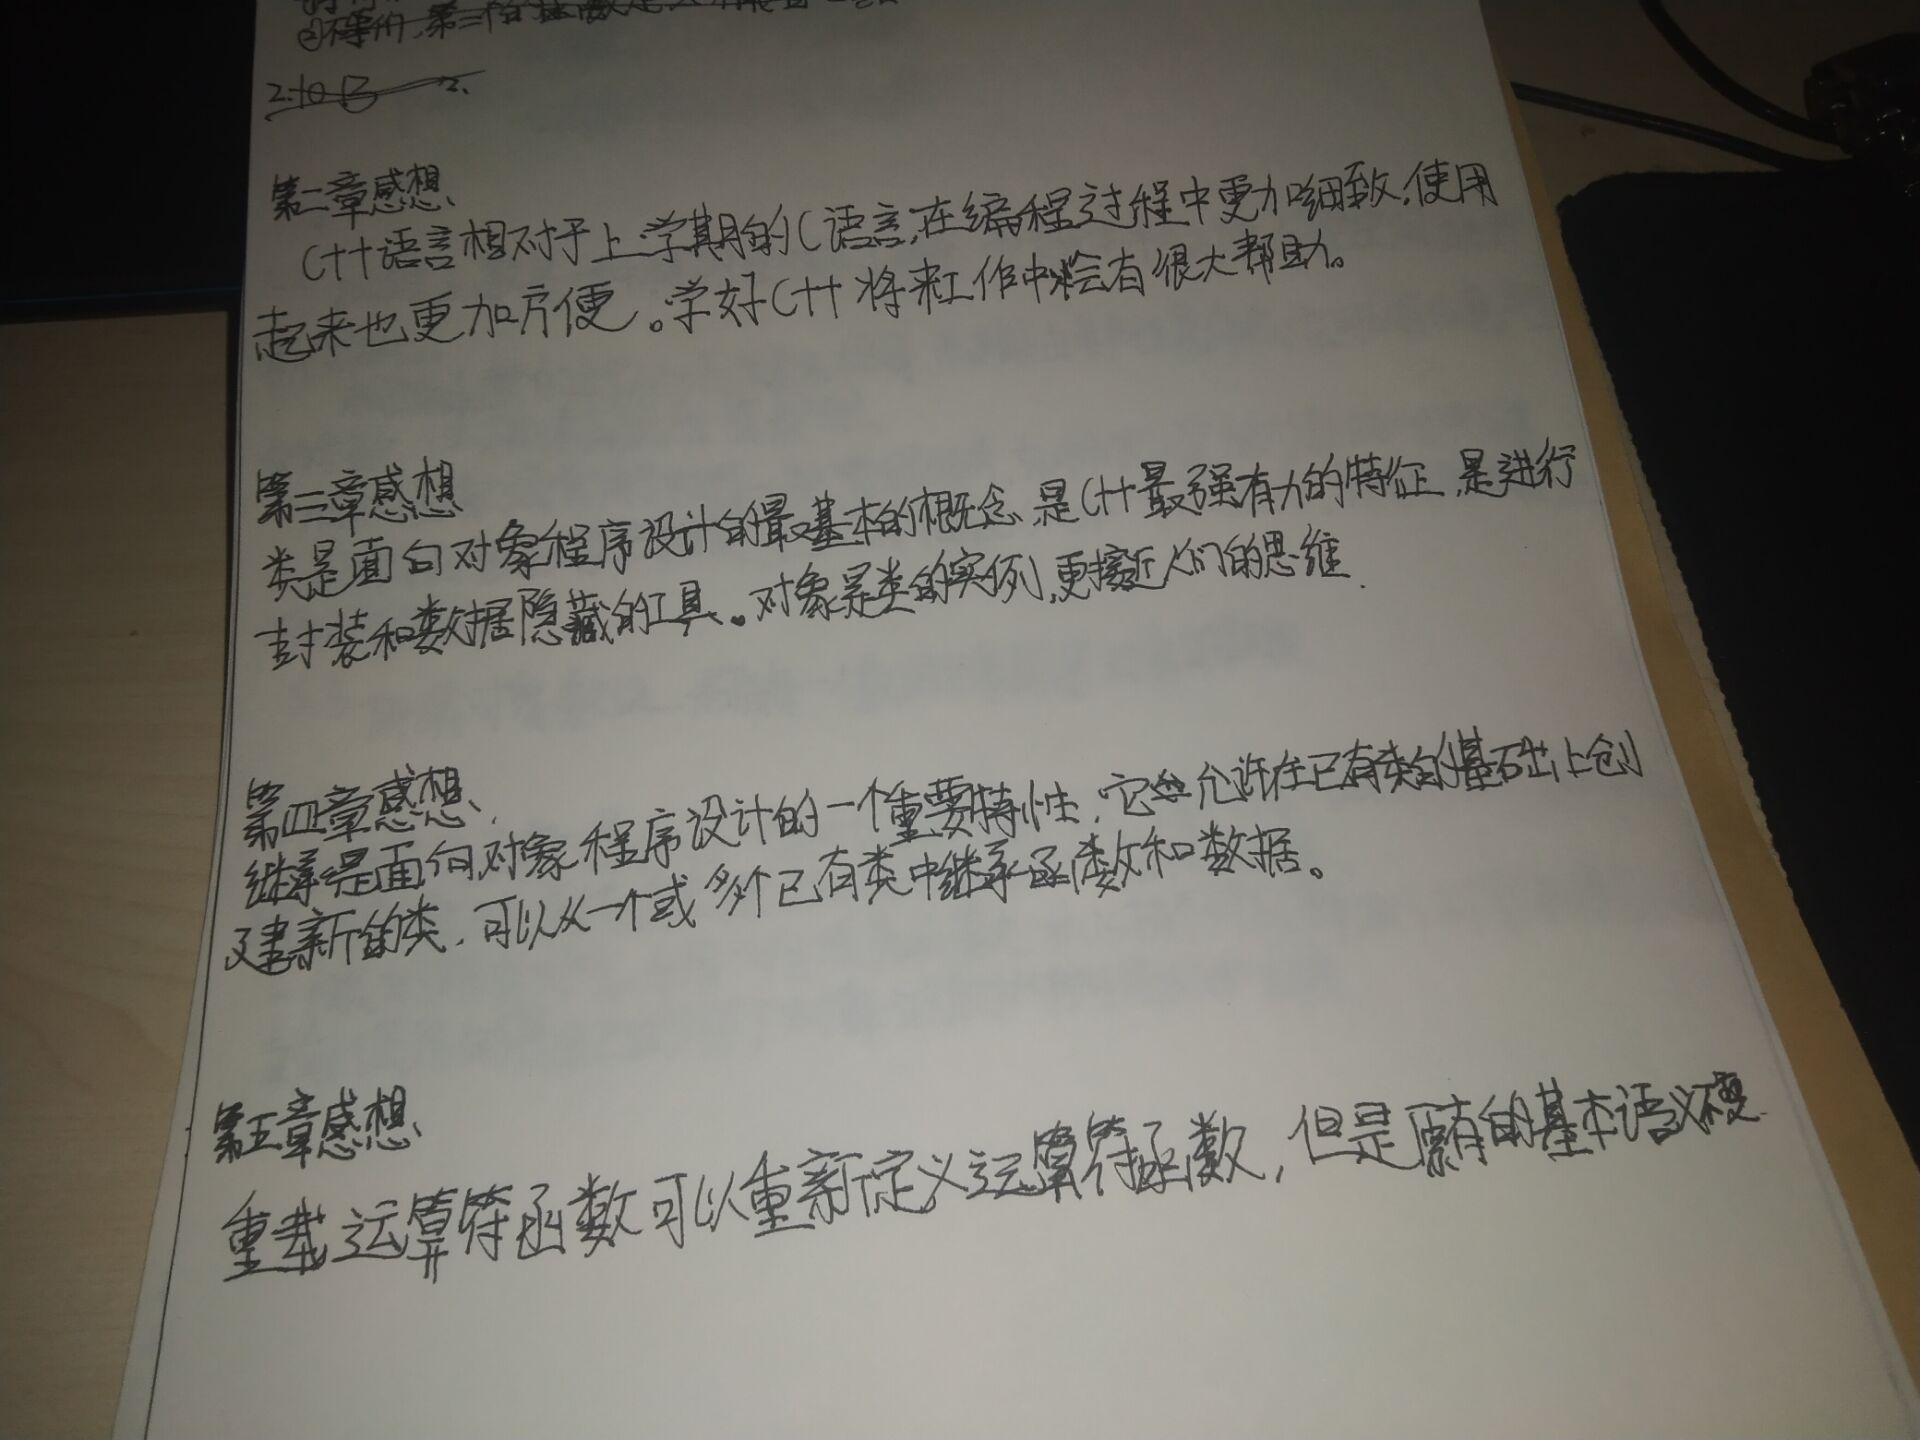 第二章感想、
C++语言相对于上学期的C语言,在编程过程中更加细致,使用
起来也更加方便。学好C++将来工作中会有很大帮助。
第三章感想
类是面向对象程序设计的最基本的概念,是C++最强有力的特征,是进行
封装和数据隐藏的工具。对象是类的实例,更接近人们的思维.
第四章感想、
继承是面向对象程序设计的一个重要特性,它允许在已有类的基础上创
建新的类,可以从一个或多个已有类中继承函数和数据。
第五章感想、
重载运算符函数可以重新定义运算符函数,但是原有的基本语义不变.